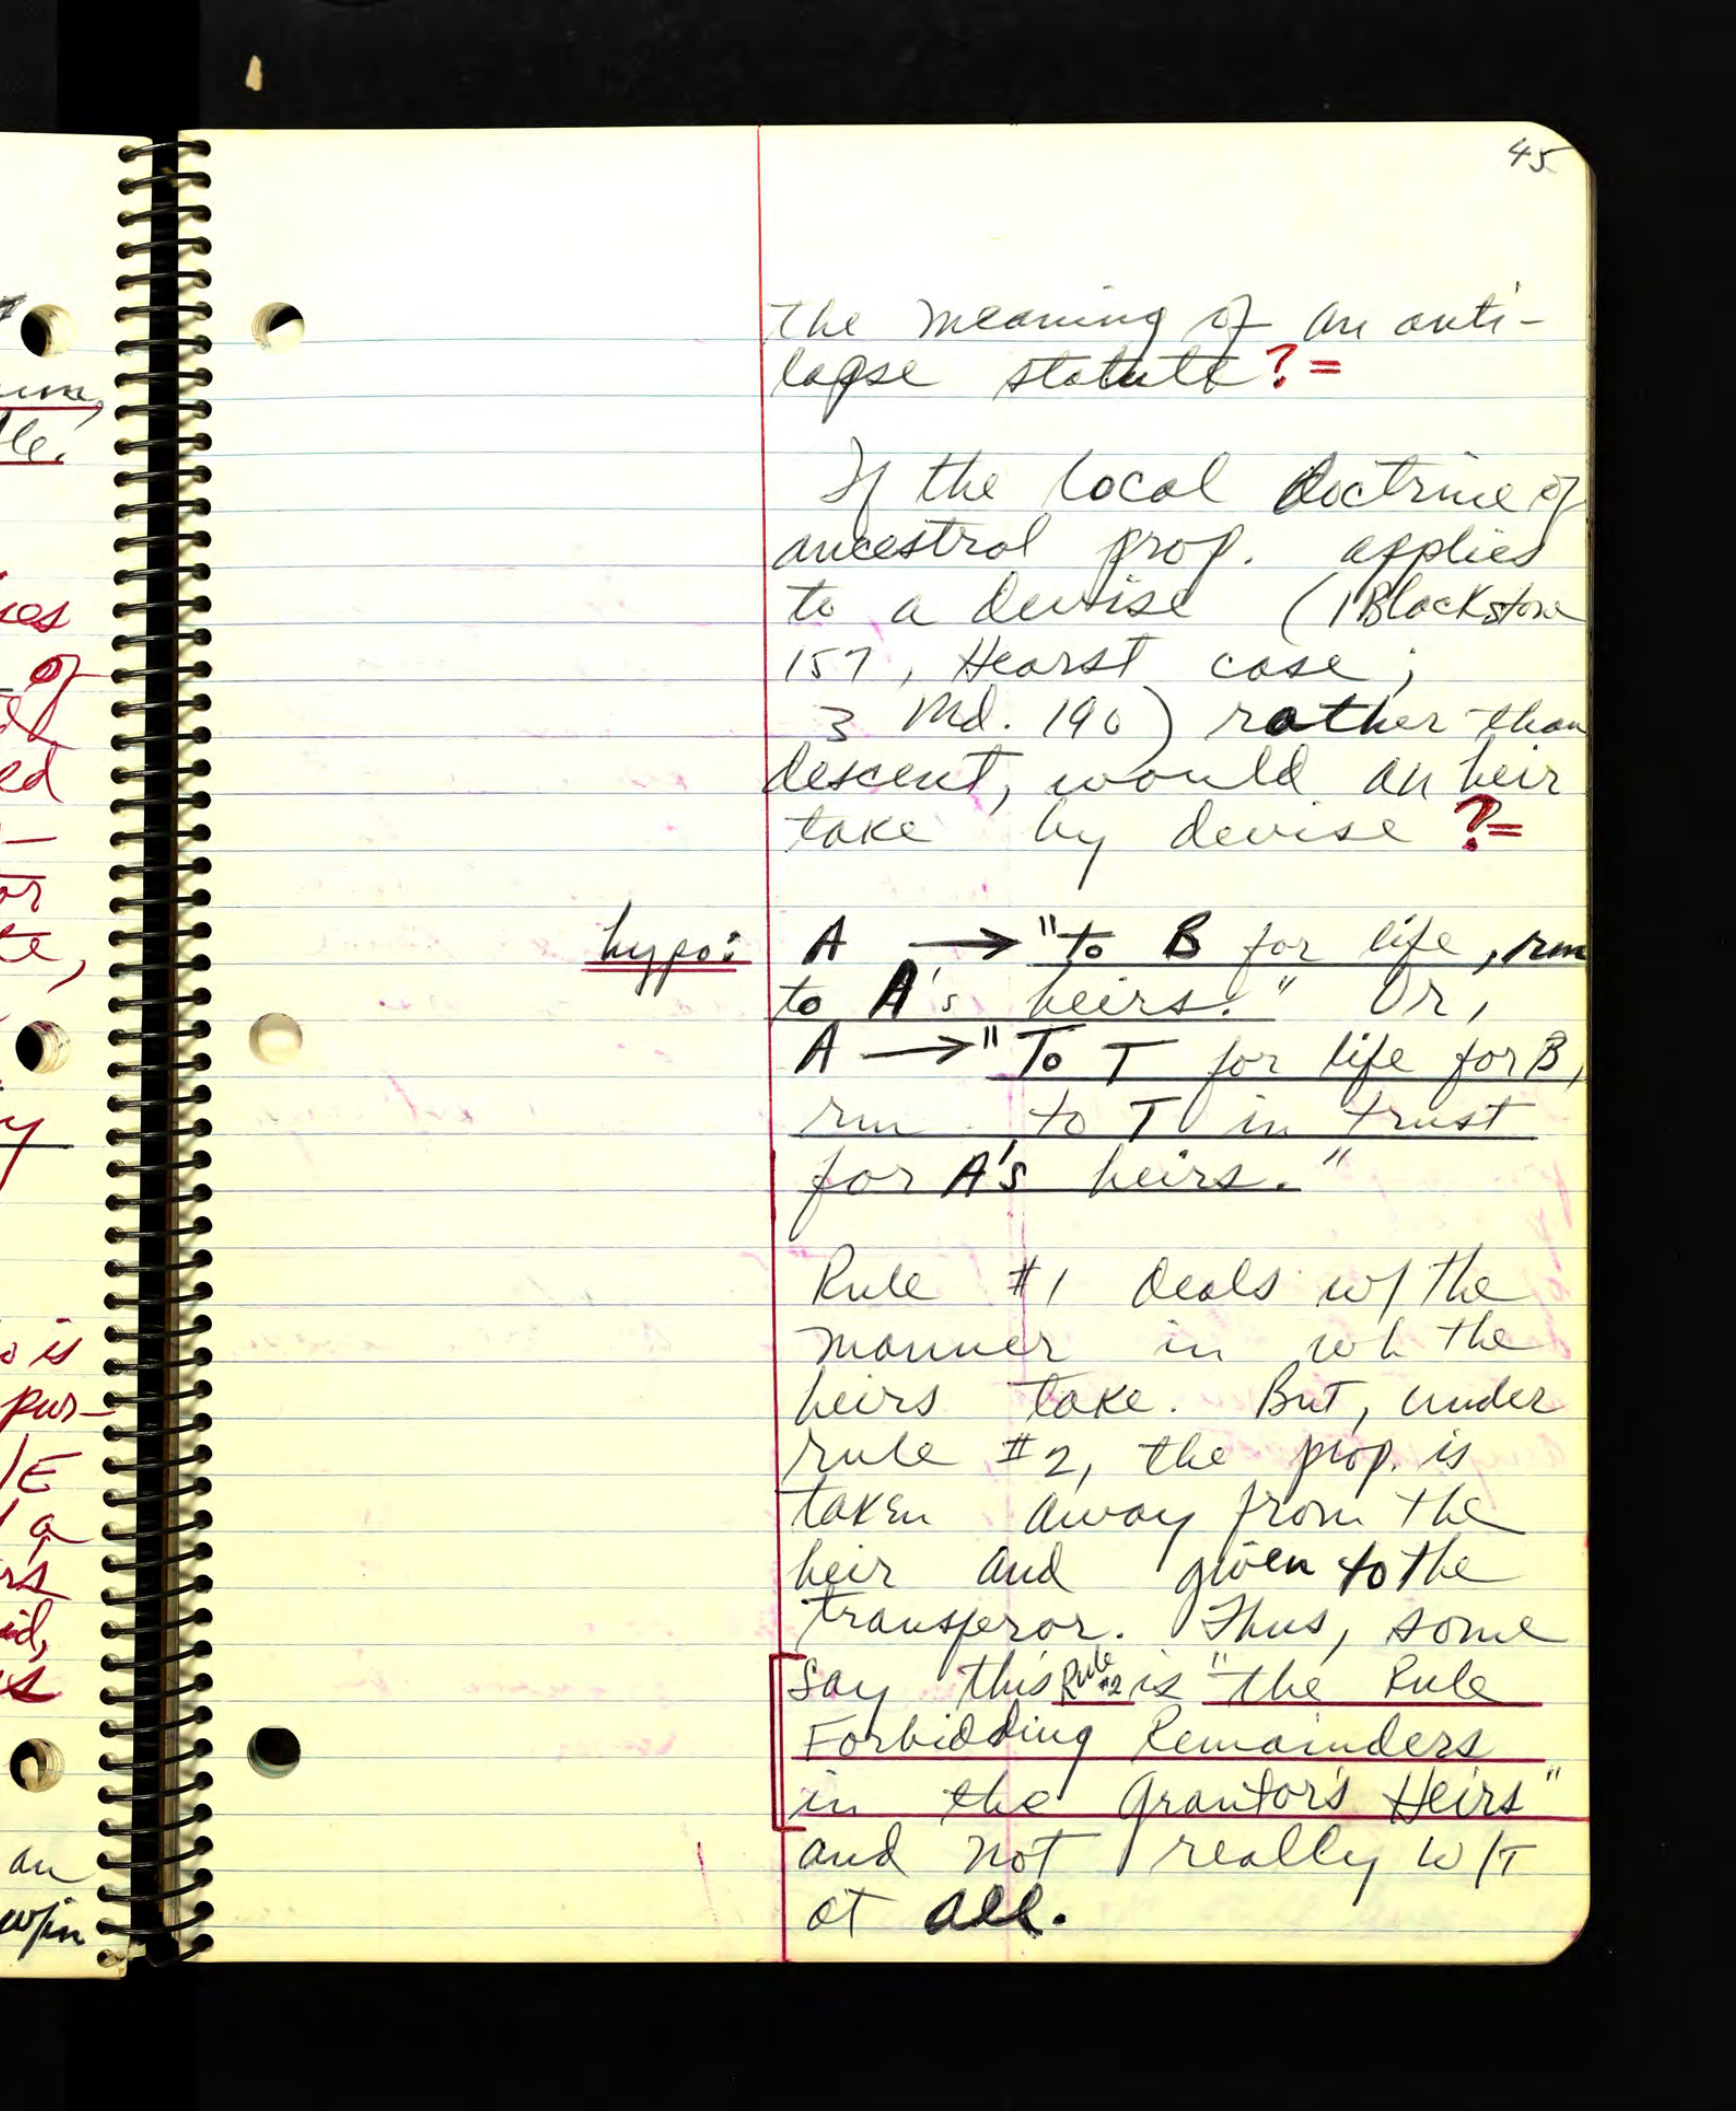 45
the meaning of an anti-
lapse statute?=
If the local doctrine of
ancestral prop. applies
to a devise (1 Blackstone
157, Hearst case;
3 Md. 190) rather than
descent, would an heir
take by devise ?=
hypo: A → "to B for life, rm
to A's heirs." Or,
A → "To T for life for B,
rm to T in trust
for A's heirs."
Rule #1 deals w/ the
manner in wh the
heirs take. But, under
rule #2, the prop. is
taken away from the
heir and given to the
transferor. Thus, some
say this Rule #2 is "the Rule
Forbidding Remainders
in the Grantor's Heirs"
and not really W/T
at all.
ume,
le.
ies
of
ed
or
te,
y
o is
pur-
/E
a
rs
id,
s
an
w/in